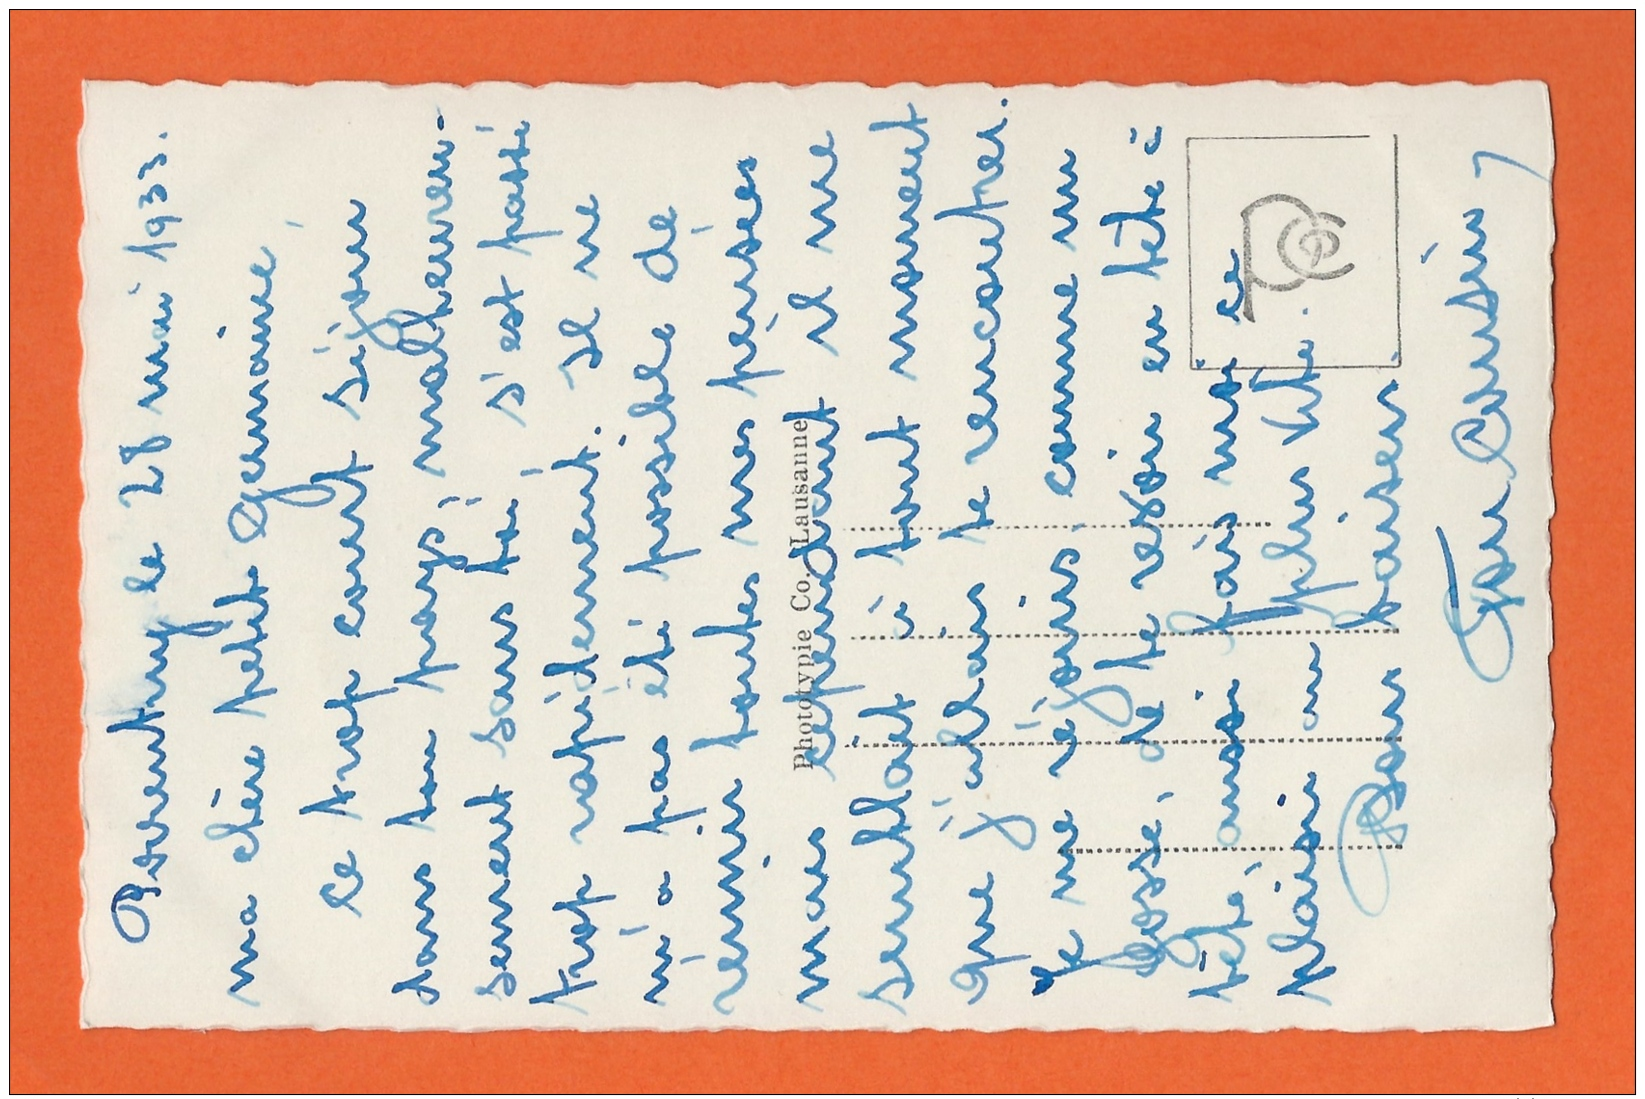 Porrentruy le 28 mai 1933.
ma chère petite Germaine,
Ce trop court séjour
dans ton pays, malheureu-
sement sans toi, s'est passé
trop rapidement. Il ne
m'a pas été possible de
réunir toutes mes pensées
mais cependant il me
semblait à tout moment
que j'allais te rencontrer.
Je me réjouis, comme un
gosse, de te revoir en tête à
tête, aussi fais moi ce
plaisir au plus vite.
Bons baisers.
Ton Cousin
Phototypie Co. Lausanne